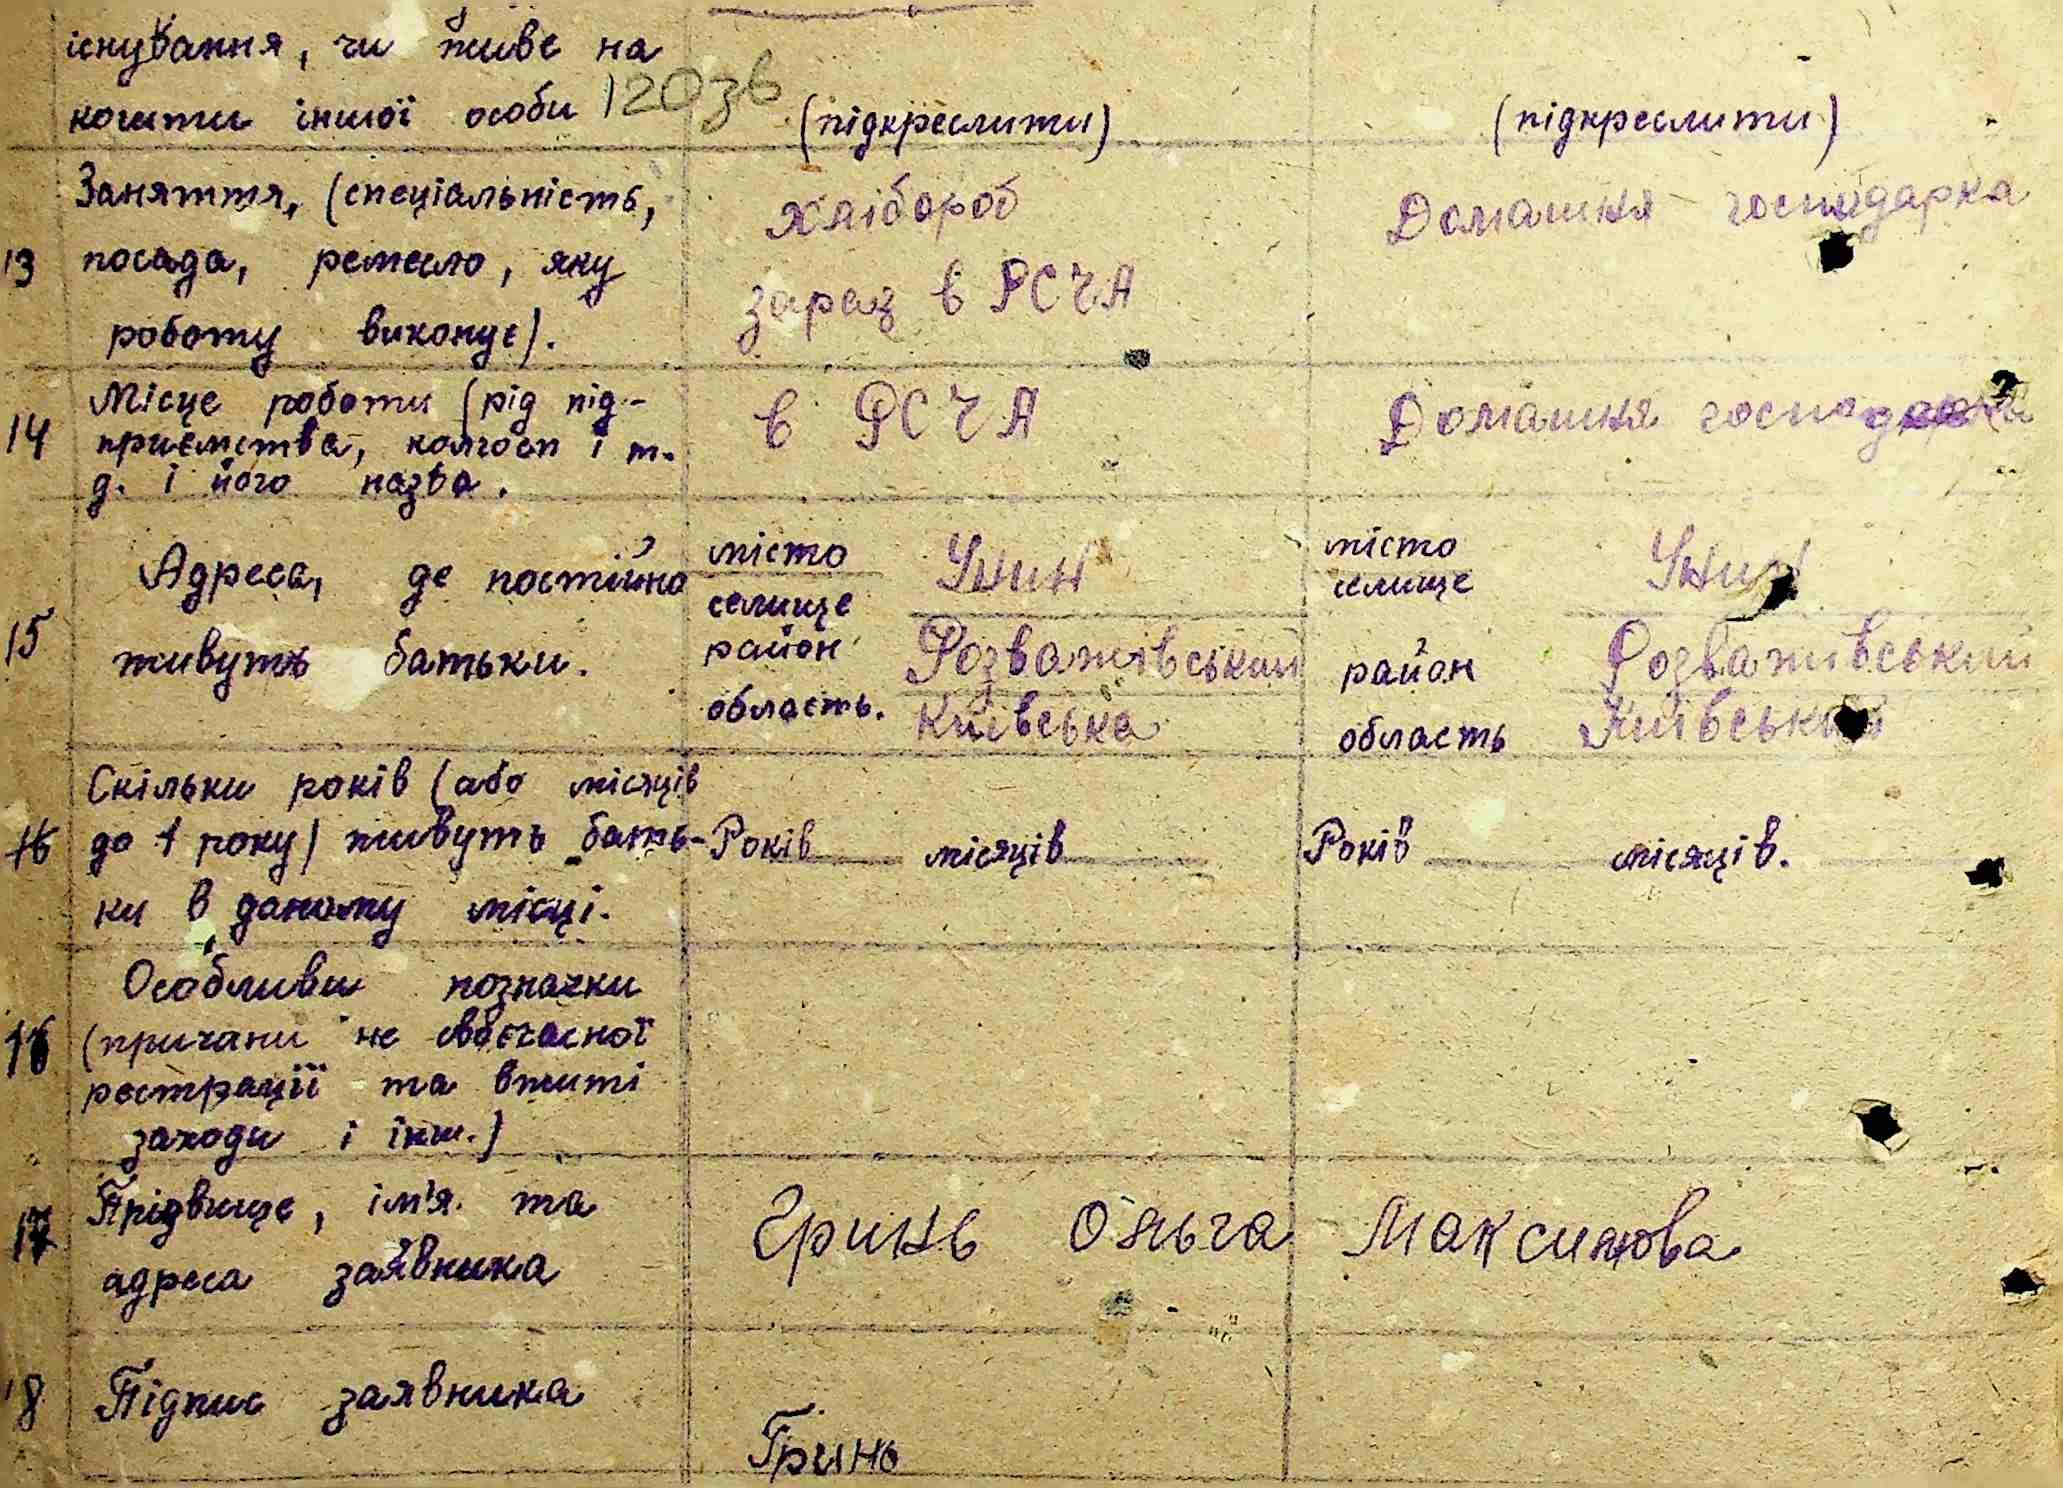 існування, чи живе на
кошти іншої особи 120зв (підкреслити) (підкреслити)
13 Заняття, (спеціальність, посада, ремесло, яку роботу виконує).
Хлібороб
зараз в РСЧА
Домашня господарка
14 Місце роботи (рід під-
приємства, колгосп і т.
д. і його назва.
в РСЧА
Домашня господарка
15 Адреса, де постійно
живуть батьки.
місто
селище Унин
район Розважівський
область. Київська
місто
селище Унин
район Розважівський
область Київський
16 Скільки років (або місяців
до 1 року) живуть бать-
ки в даному місці.
Років місяців
Років місяців.
16 Особливи позначки
(причани не своєчасної
рєстрації та вжиті
заходи і інш.)
17 Прідвище, ім'я та
адреса заявника
Гринь Ольга Максимова
18 Підпис заявника
Гринь